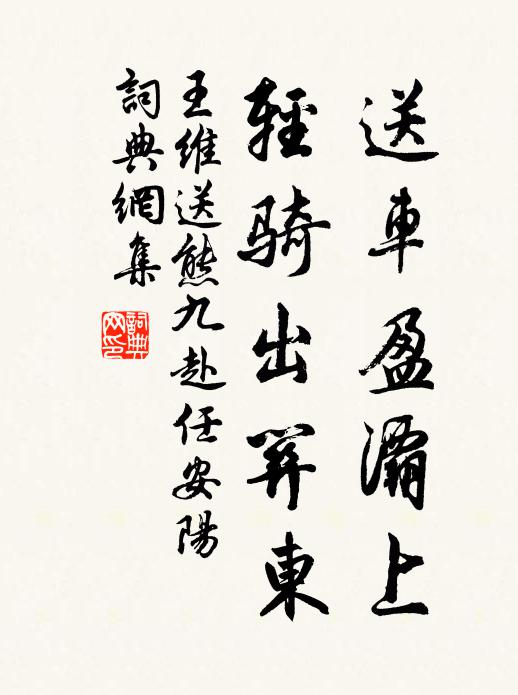 送車盈灞上
輕騎出關東
王維送熊九赴任安陽
詞典網集
詞典
网印